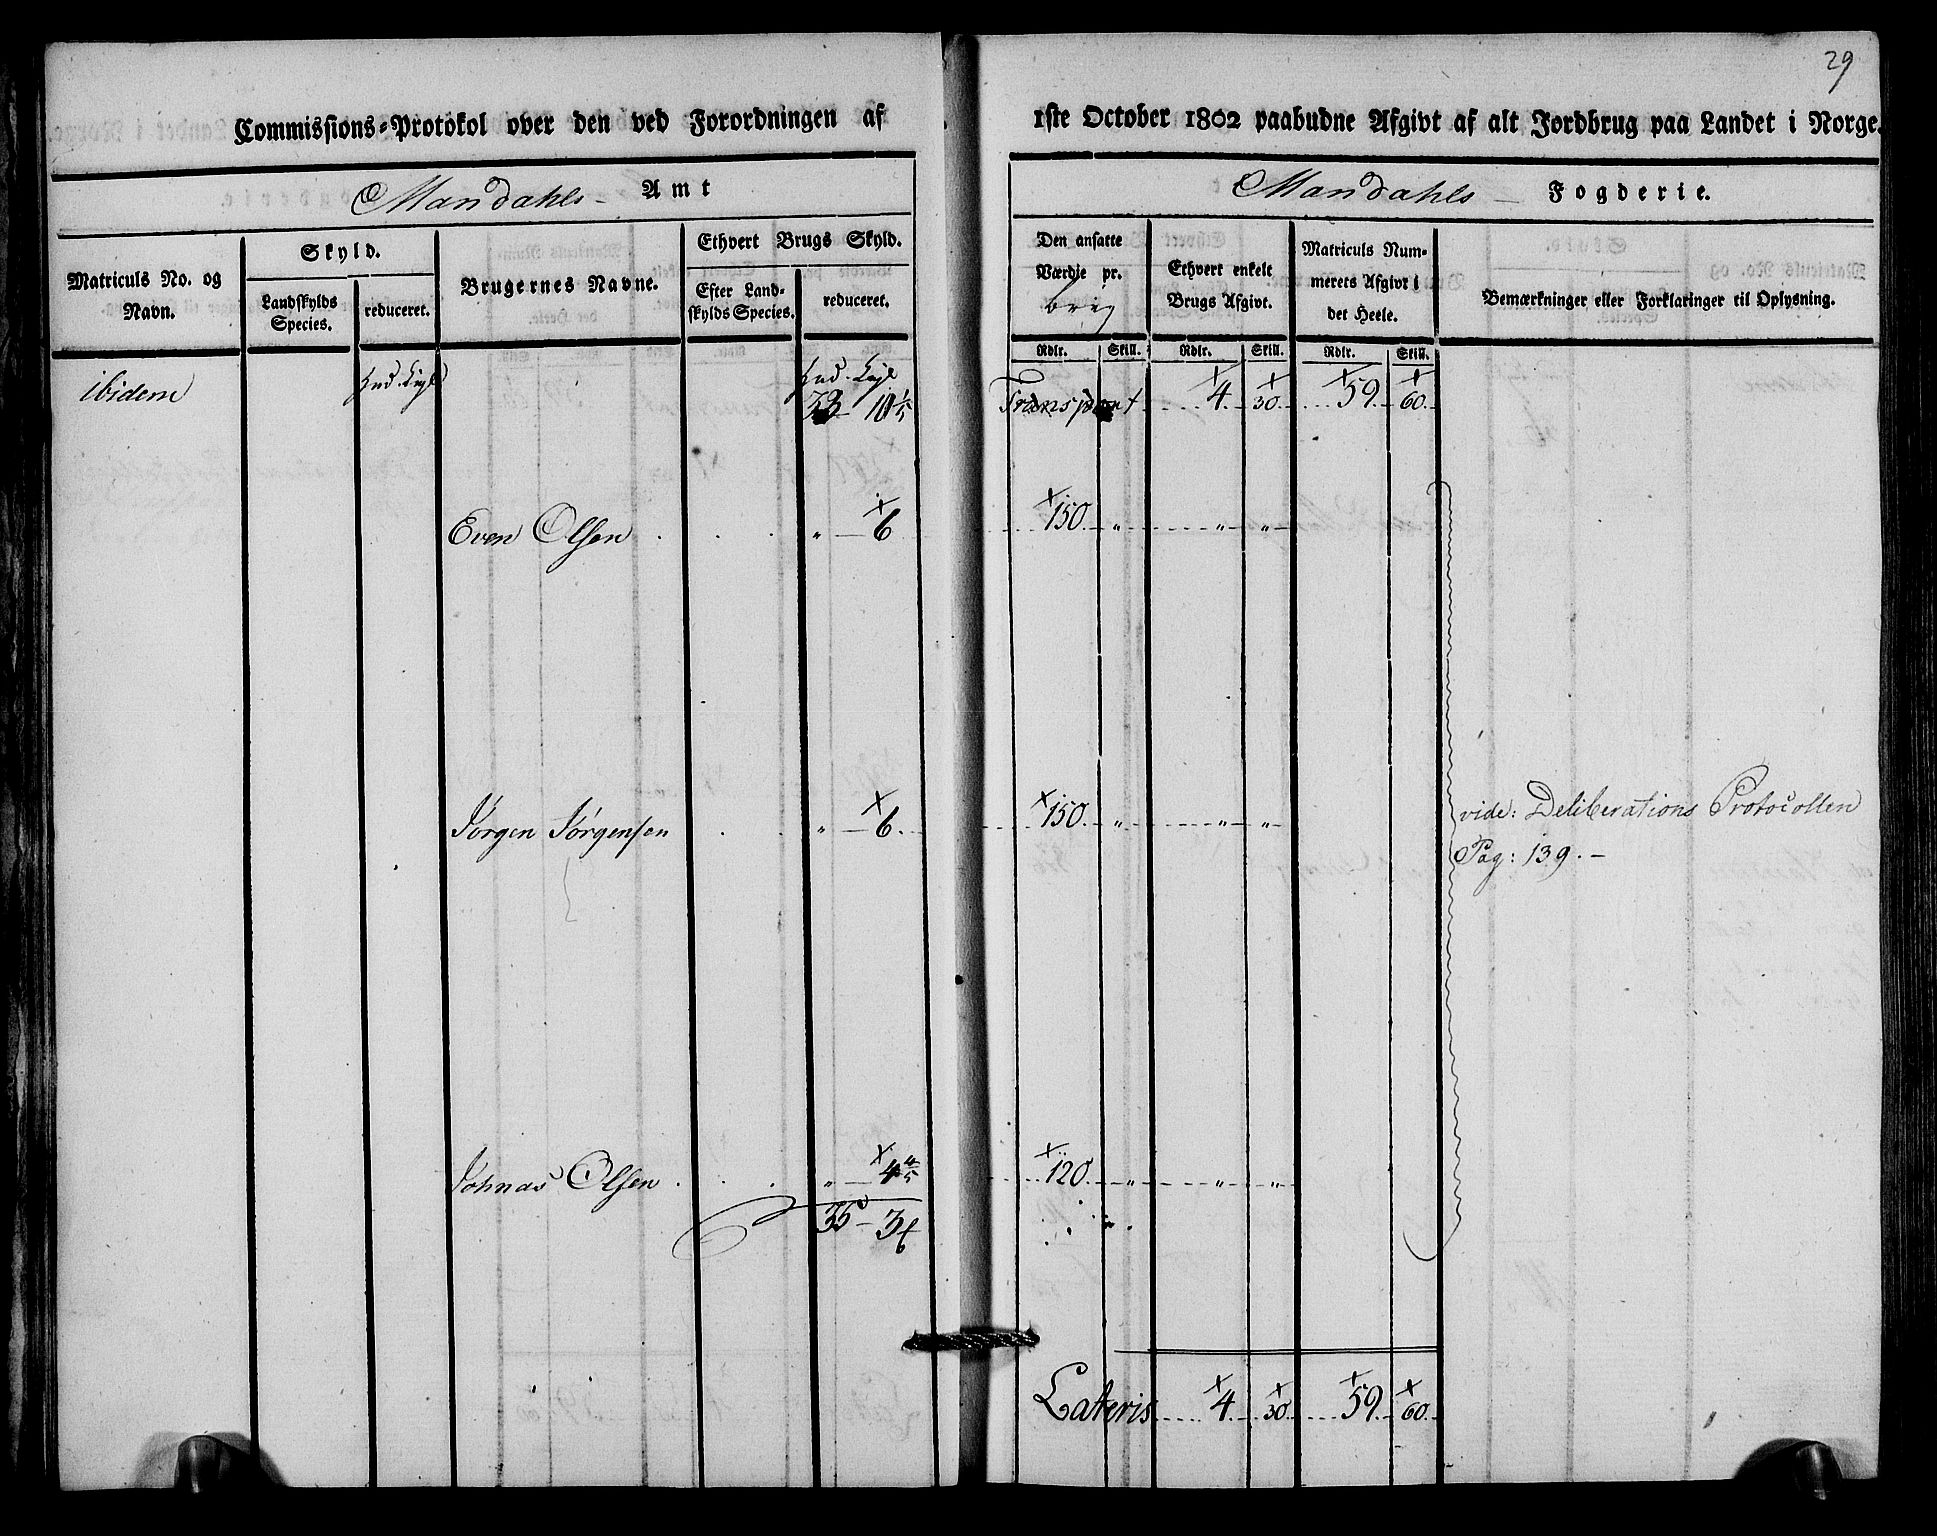 29
Commissions-Protokol over den ved Forordningen af 1ste October 1802 paabudne Afgivt af alt Jordbrug paa Landet i Norge.
Mandahls - Amt
Mandahls - Fogderie.
Matriculs No. og Navn.
Skyld.
Landskylds Species.
reduceret.
Brugernes Navne.
Ethvert Brugs Skyld.
Efter Landskylds Species.
reduceret.
Den ansatte Værdie pr. brug
Ethvert enkelt Brugs Afgivt.
Matriculs Nummerets Afgivt i det Heele.
Bemærkninger eller Forklaringer til Oplysning.
Rdlr. Skill. Rdlr. Skill. Rdlr. Skill.
ibidem 33 10 1/5 Transport 4 30 59 60
Even Olsen . . . " 6 150 " " "
Jørgen Jørgensen . . " 6 150 " " "
vide: Deliberations Protocollen
Pag: 139. -
Johnas Olsen . . . " 4 4/5 120 " " "
35 - 3
Lateris 4 30 59 60